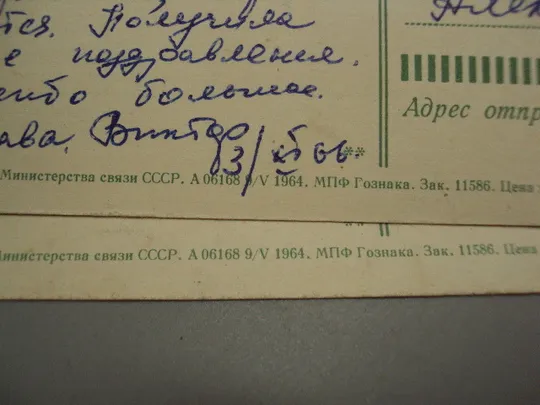 тся. Получила
е поздравления.
ибо большое.
ава. Виктор
3/XI 66.
**
Адрес отпр
Министерства связи СССР. А 06168 9/V 1964. МПФ Гознака. Зак. 11586. Цена
Министерства связи СССР. А 06168 9/V 1964. МПФ Гознака. Зак. 11586. Цена